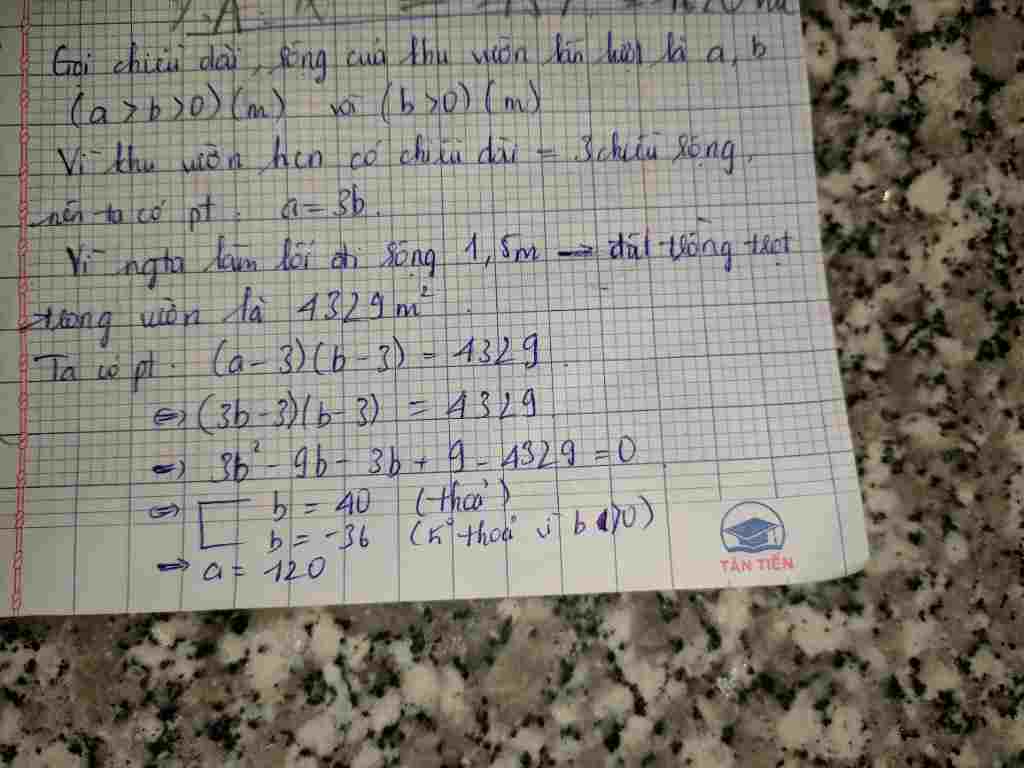 Gọi chiều dài, rộng của khu vườn lần lượt là a, b
(a > b > 0) (m) và (b > 0) (m)
Vì khu vườn hcn có chiều dài = 3 chiều rộng.
nên ta có pt : a = 3b.
Vì ngta làm lối đi rộng 1,5m → đất trồng trọt
trong vườn là 4329 m².
Ta có pt : (a - 3)(b - 3) = 4329
⇔ (3b - 3)(b - 3) = 4329
⇒ 3b² - 9b - 3b + 9 - 4329 = 0
⇔ [ b = 40 (thoả)
b = -36 (k° thoả vì b > 0)
⇒ a = 120
TÂN TIẾN